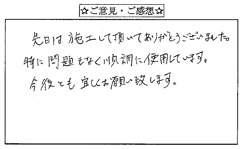 ☆ご意見・ご感想☆
先日は施工して頂いてありがとうございました。
特に問題もなく順調に使用しています。
今後とも宜しくお願い致します。